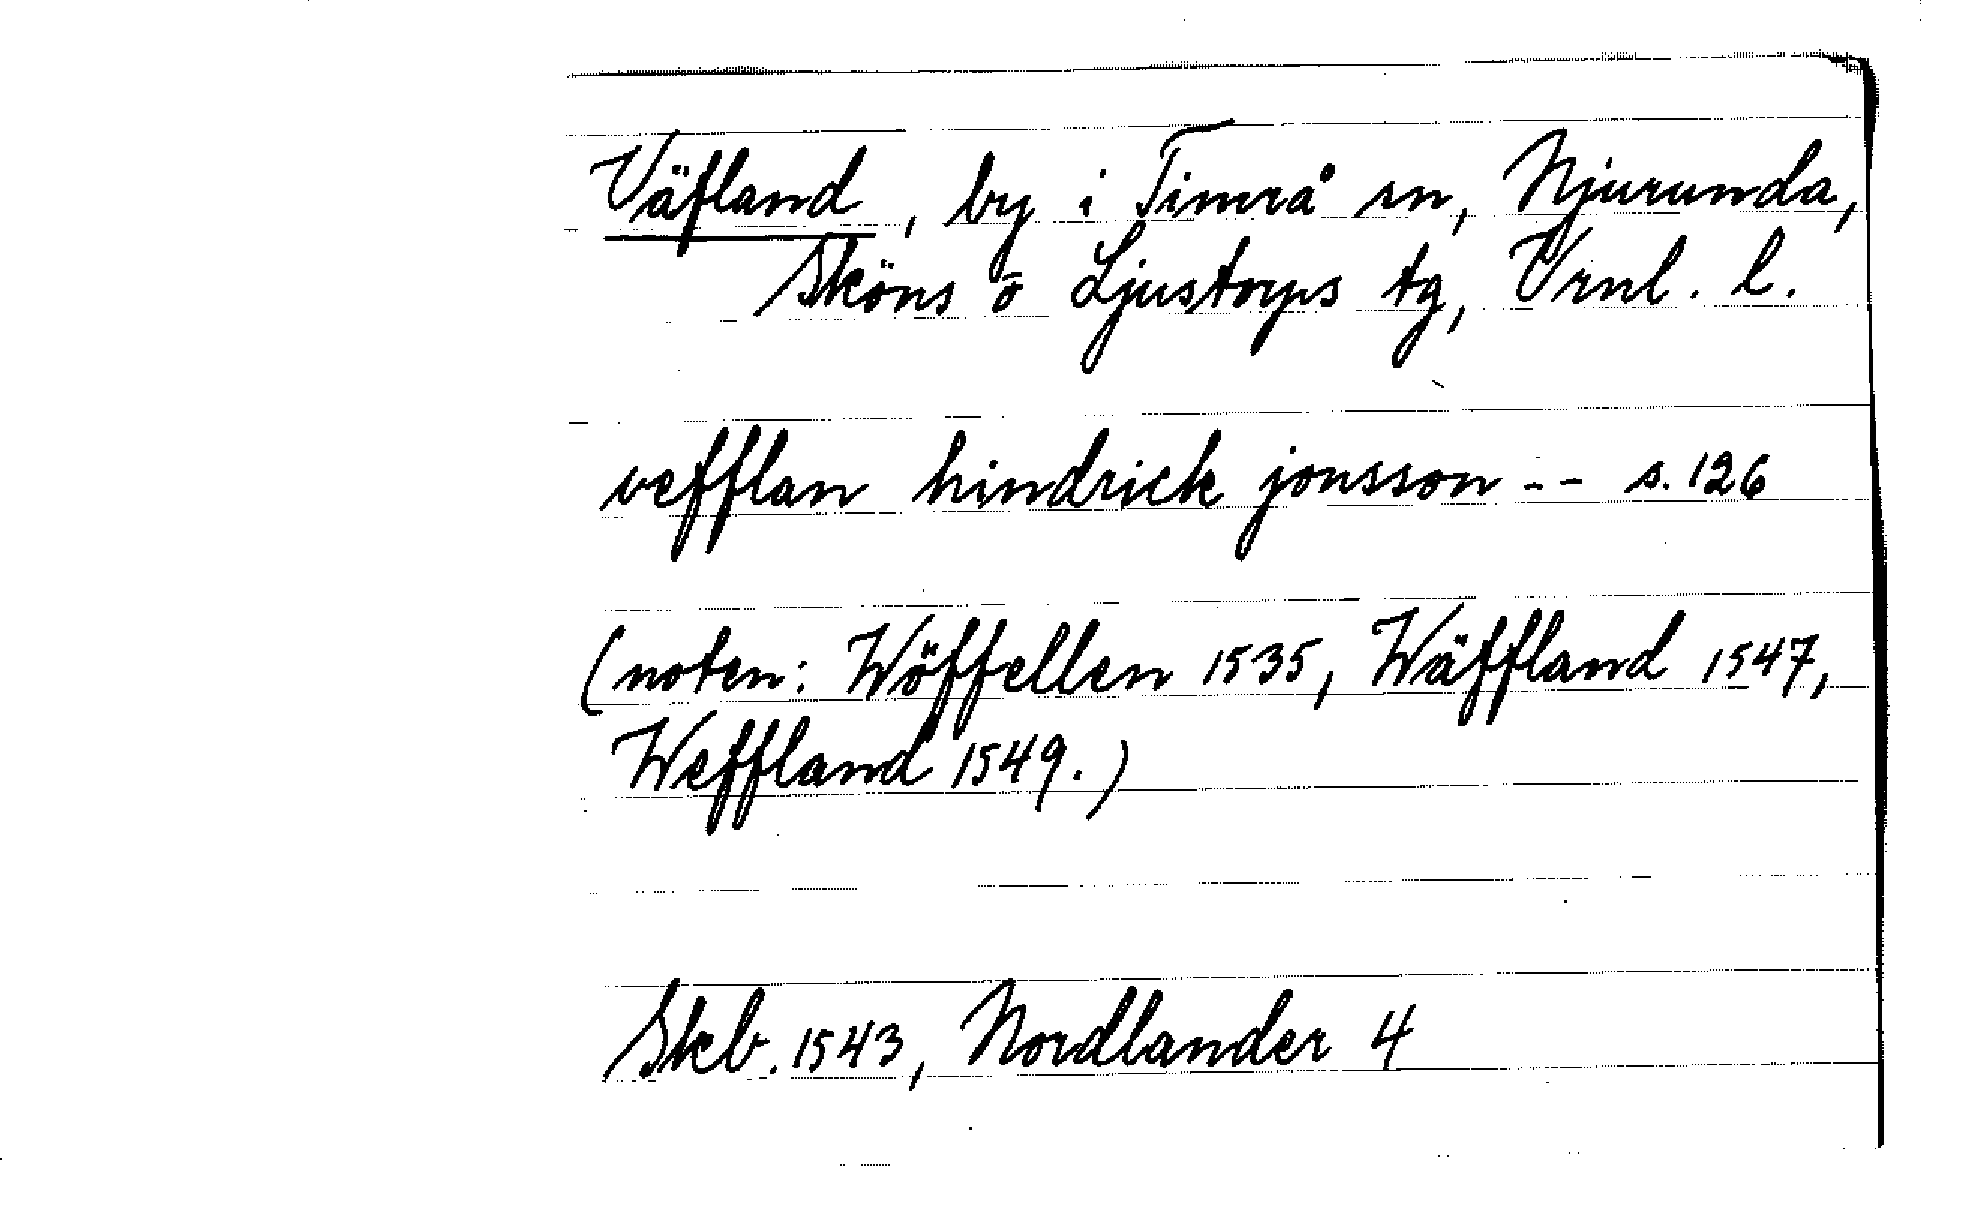 Väfland, by i Timrå sn, Njurunda,
Sköns o Ljustorps tg, Vrnl. l.
vefflan hindrick jonsson -- s. 126
(noten: Wöffellen 1535, Wäffland 1547,
Weffland 1549.)
Skb. 1543, Nordlander 4